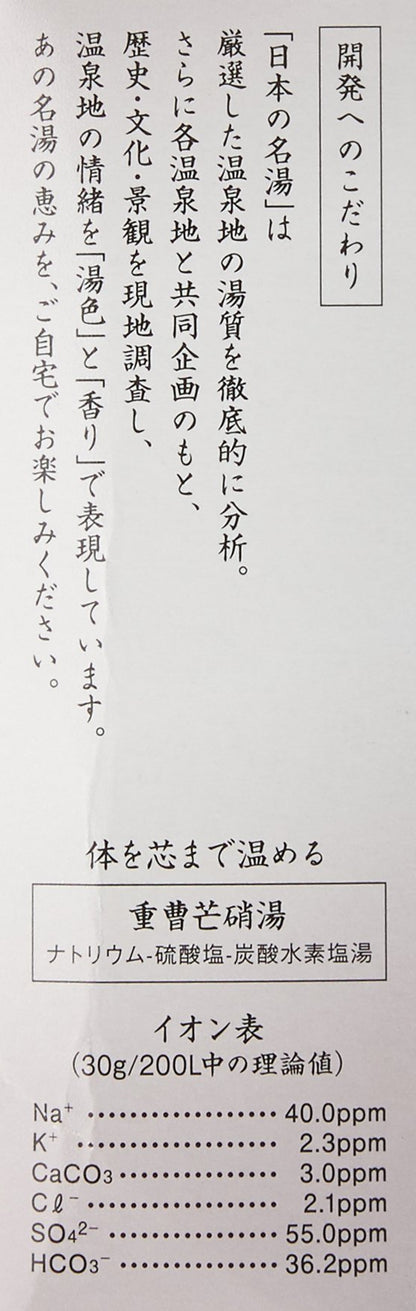 開発へのこだわり
「日本の名湯」は
厳選した温泉地の湯質を徹底的に分析。
さらに各温泉地と共同企画のもと、
歴史・文化・景観を現地調査し、
温泉地の情緒を「湯色」と「香り」で表現しています。
あの名湯の恵みを、ご自宅でお楽しみください。
体を芯まで温める
重曹芒硝湯
ナトリウム-硫酸塩-炭酸水素塩湯
イオン表
(30g/200L中の理論値)
Na⁺ ･･････････････････ 40.0ppm
K⁺ ･･････････････････ 2.3ppm
CaCO₃ ･･････････････････ 3.0ppm
Cℓ⁻ ･･････････････････ 2.1ppm
SO₄²⁻ ･･････････････････ 55.0ppm
HCO₃⁻ ･･････････････････ 36.2ppm